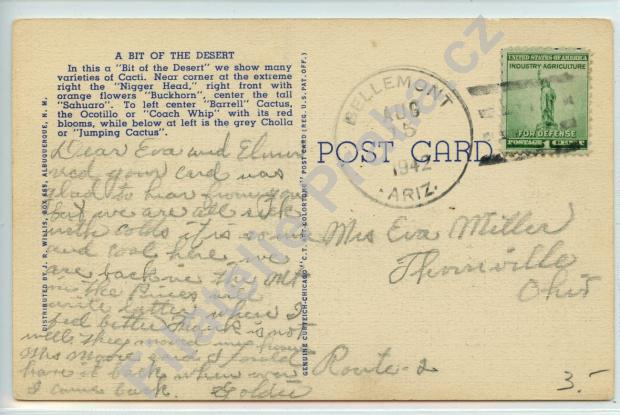 A BIT OF THE DESERT
In this a "Bit of the Desert" we show many
varieties of Cacti. Near corner at the extreme
right the "Nigger Head," right front with
orange flowers "Buckhorn", center the tall
"Sahuaro". To left center "Barrell" Cactus,
the Ocotillo or "Coach Whip" with its red
blooms, while below at left is the grey Cholla
or "Jumping Cactus".
Dear Eva and Elmer
recd your card was
glad to hear from you
but we are all sick
with colds it is
and cool here, we
are back in the mts
in the Pines will
write letter when I
feel better Mark is not
well. they moved my house
Mrs Moore said I could
have it back when ever
I came back. Goldie
DISTRIBUTED BY J. R. WILLIS, BOX 665, ALBUQUERQUE, N. M.
GENUINE CURTEICH-CHICAGO "C.T. ART-COLORTONE" POST CARD (REG. U.S. PAT. OFF.)
POST CARD
BELLEMONT
AUG
1942
ARIZ.
UNITED STATES OF AMERICA
INDUSTRY AGRICULTURE
FOR DEFENSE
POSTAGE 1 CENT
Mrs Eva Miller
Thornville
Ohio
Route-2
3.-
Filatelie Prokur.cz